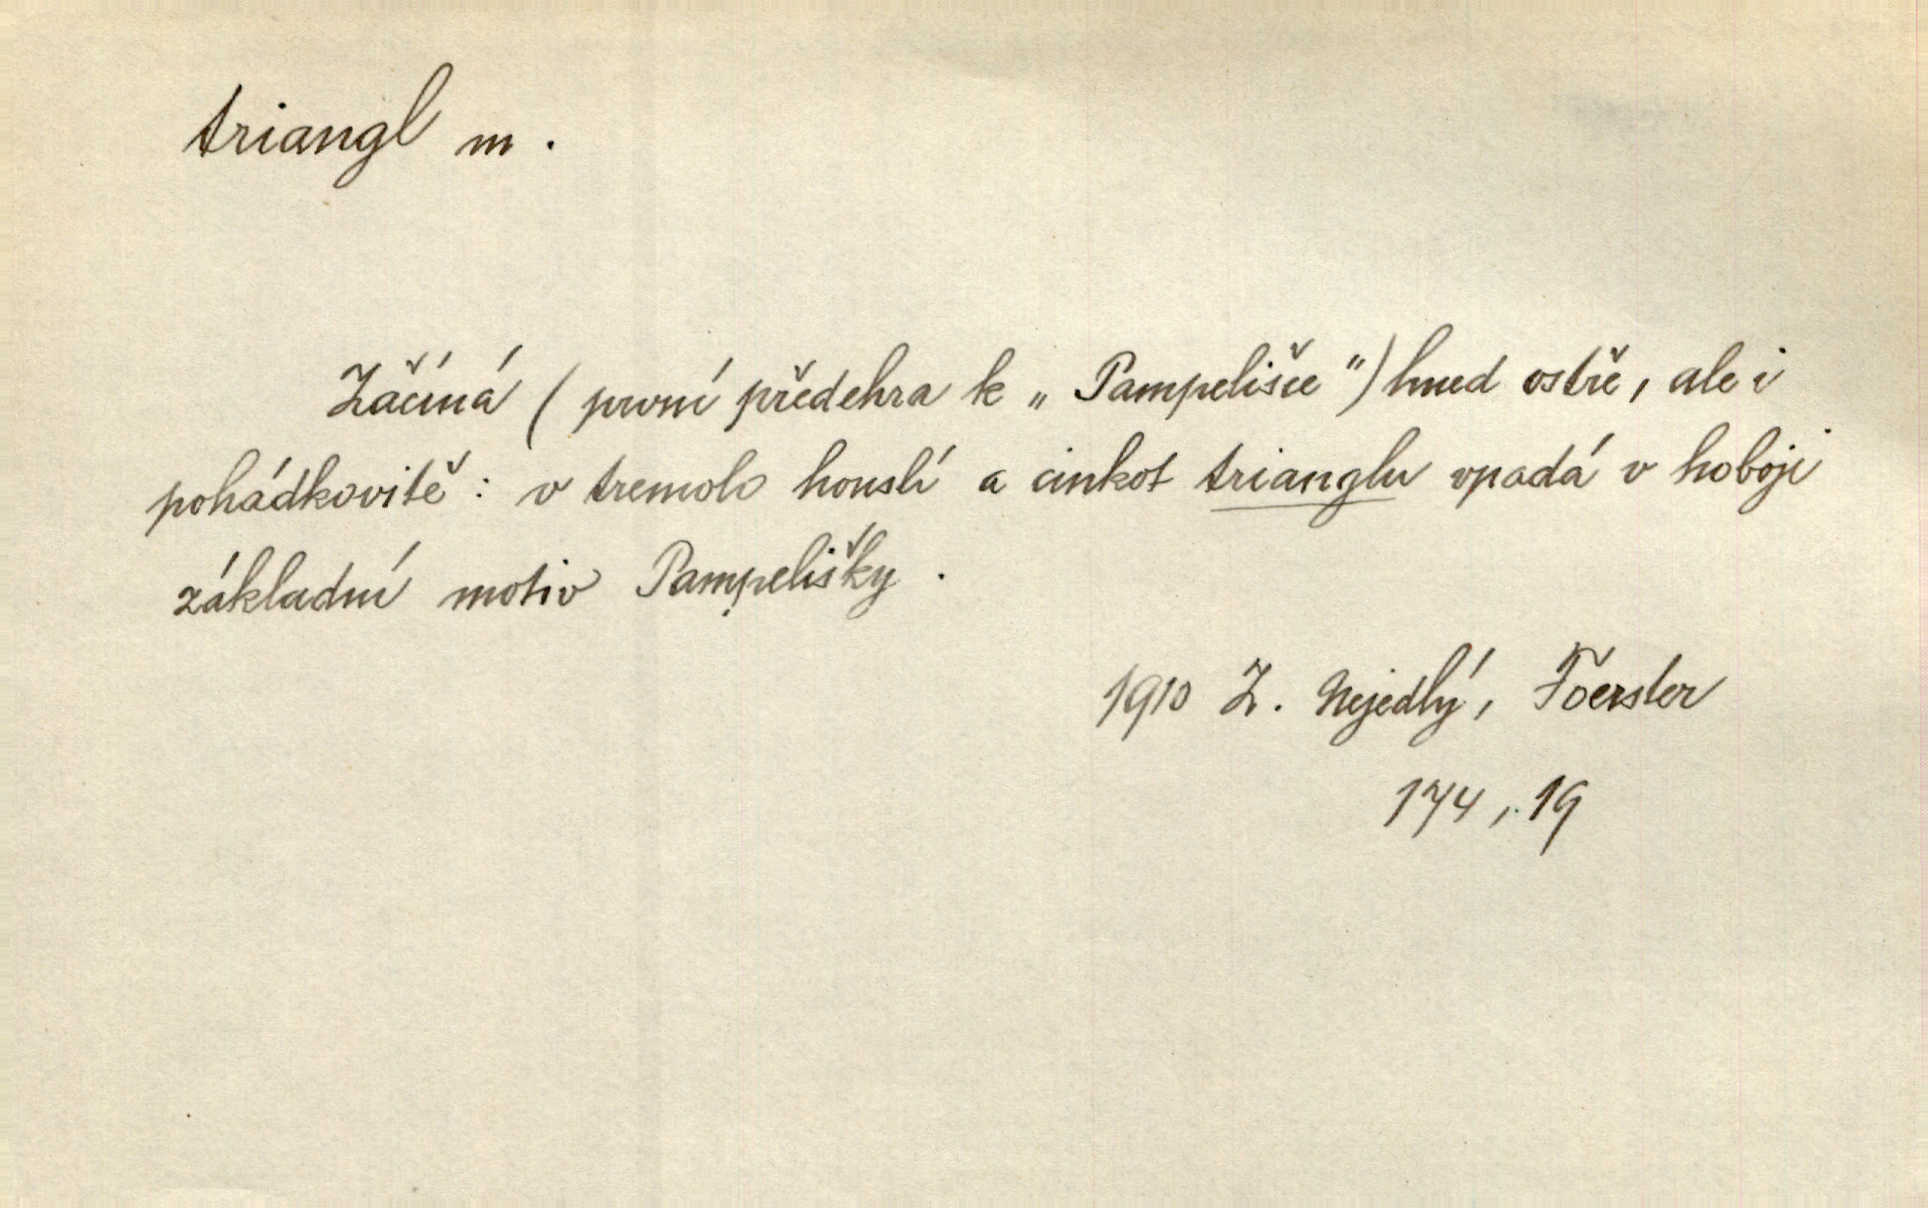 triangl m.
Začíná (první předehra k „Pampelišce") hned ostře, ale i
pohádkovitě: v tremolo houslí a cinkot trianglu vpadá v hoboji
základní motiv Pampelišky.
1910 Z. Nejedlý, Foerster
174, 19